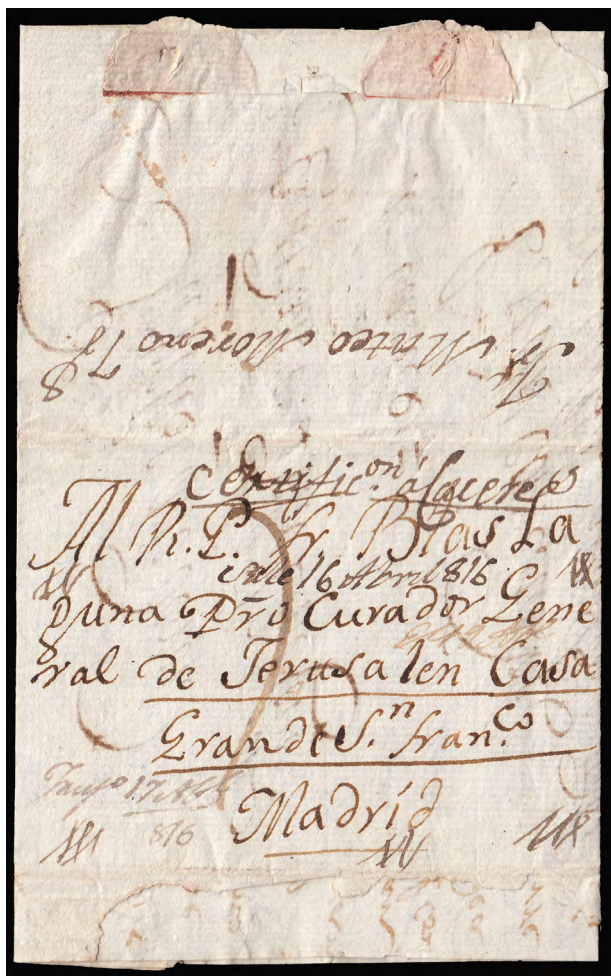 Fr. Mateo Moreno
Certific.on a Caceres
Al R. P. fr. Blas La
sale 16 Abril 816
guna Pro Curador Gene
ral de Jerusalen Casa
Grande S.n fran.co
17
816
Madrid